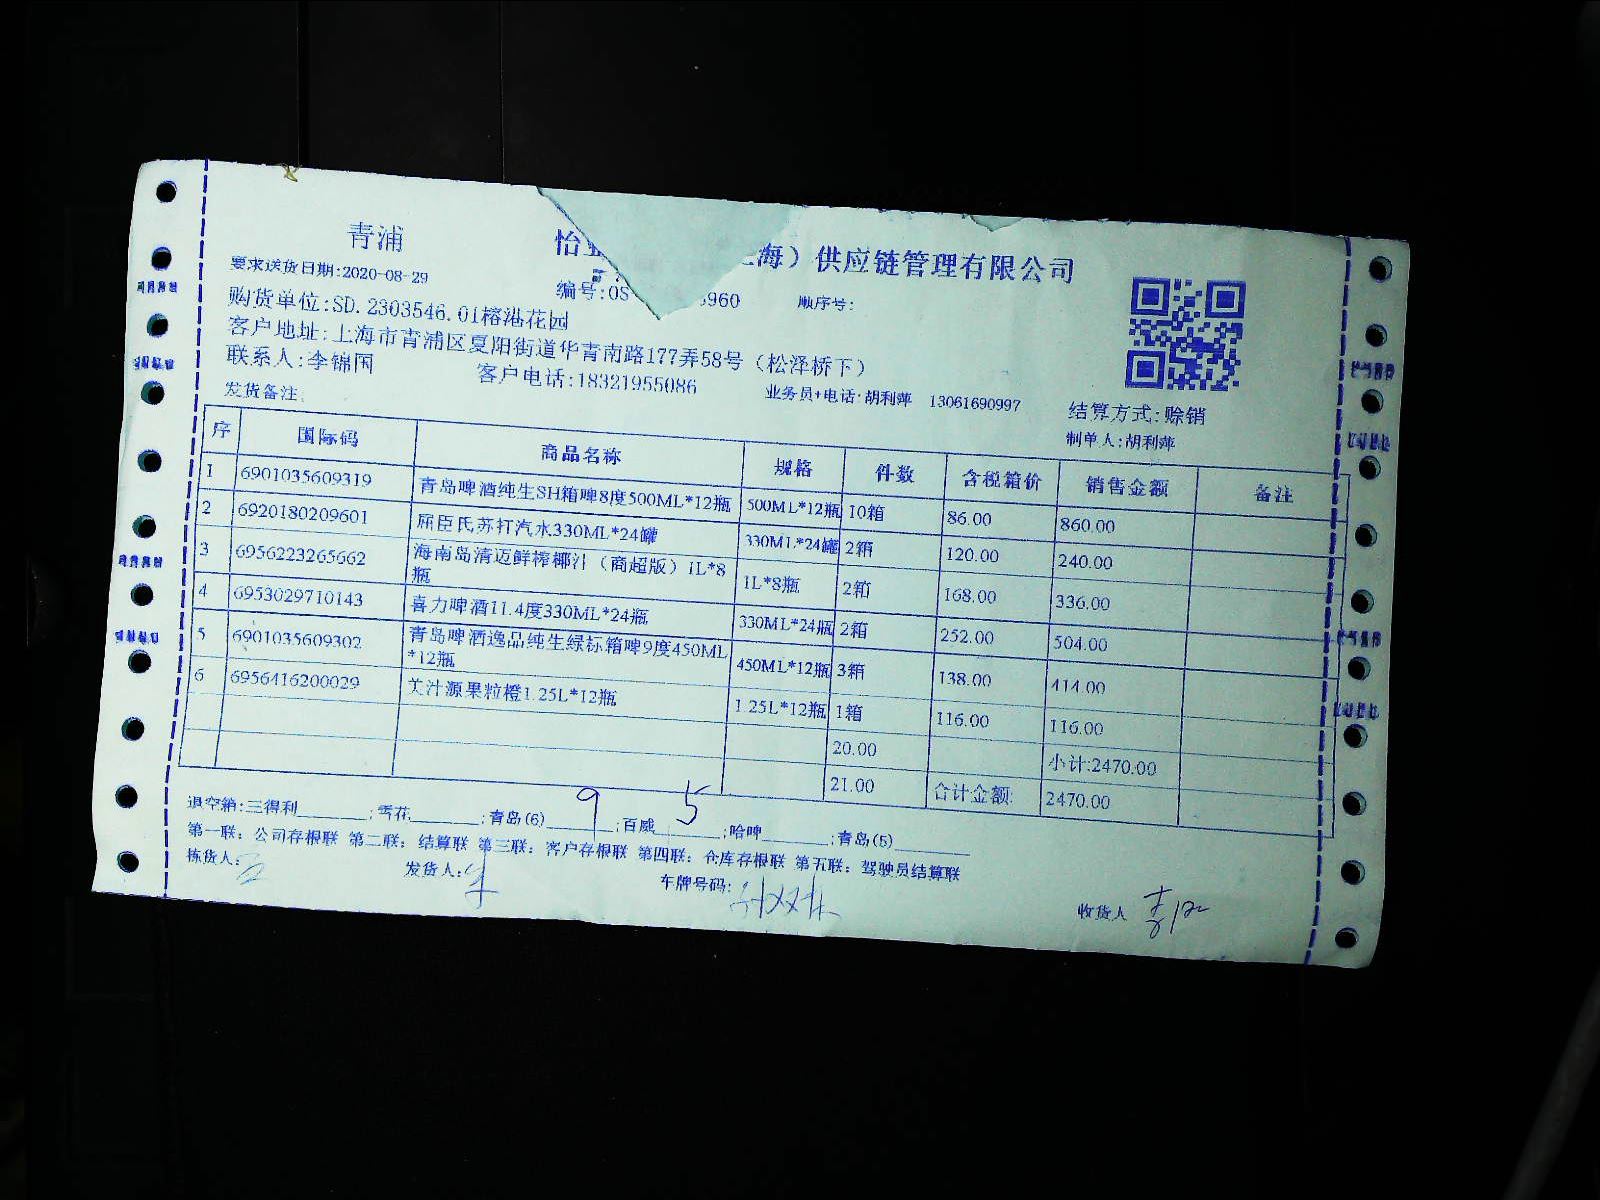 青浦
怡亚 海）供应链管理有限公司
要求送货日期:2020-08-29
编号:0S 960 顺序号:
购货单位:SD.2303546.01榕港花园
客户地址:上海市青浦区夏阳街道华青南路177弄58号（松泽桥下）
联系人:李锦国 客户电话:18321955086 业务员+电话:胡利萍 13061690997 结算方式:赊销
发货备注: 制单人:胡利萍
序 国际码 商品名称 规格 件数 含税箱价 销售金额 备注
1 6901035609319 青岛啤酒纯生SH箱啤8度500ML*12瓶 500ML*12瓶 10箱 86.00 860.00
2 6920180209601 屈臣氏苏打汽水330ML*24罐 330ML*24罐 2箱 120.00 240.00
3 6956223265662 海南岛清迈鲜榨椰汁（商超版）1L*8瓶 1L*8瓶 2箱 168.00 336.00
4 6953029710143 喜力啤酒11.4度330ML*24瓶 330ML*24瓶 2箱 252.00 504.00
5 6901035609302 青岛啤酒逸品纯生绿标箱啤9度450ML*12瓶 450ML*12瓶 3箱 138.00 414.00
6 6956416200029 美汁源果粒橙1.25L*12瓶 1.25L*12瓶 1箱 116.00 116.00
20.00 小计:2470.00
21.00 合计金额: 2470.00
退空箱:三得利______;雪花______;青岛(6)__9__;百威__5__;哈啤______;青岛(5)______
第一联：公司存根联 第二联：结算联 第三联：客户存根联 第四联：仓库存根联 第五联：驾驶员结算联
拣货人: 发货人: 车牌号码: 收货人